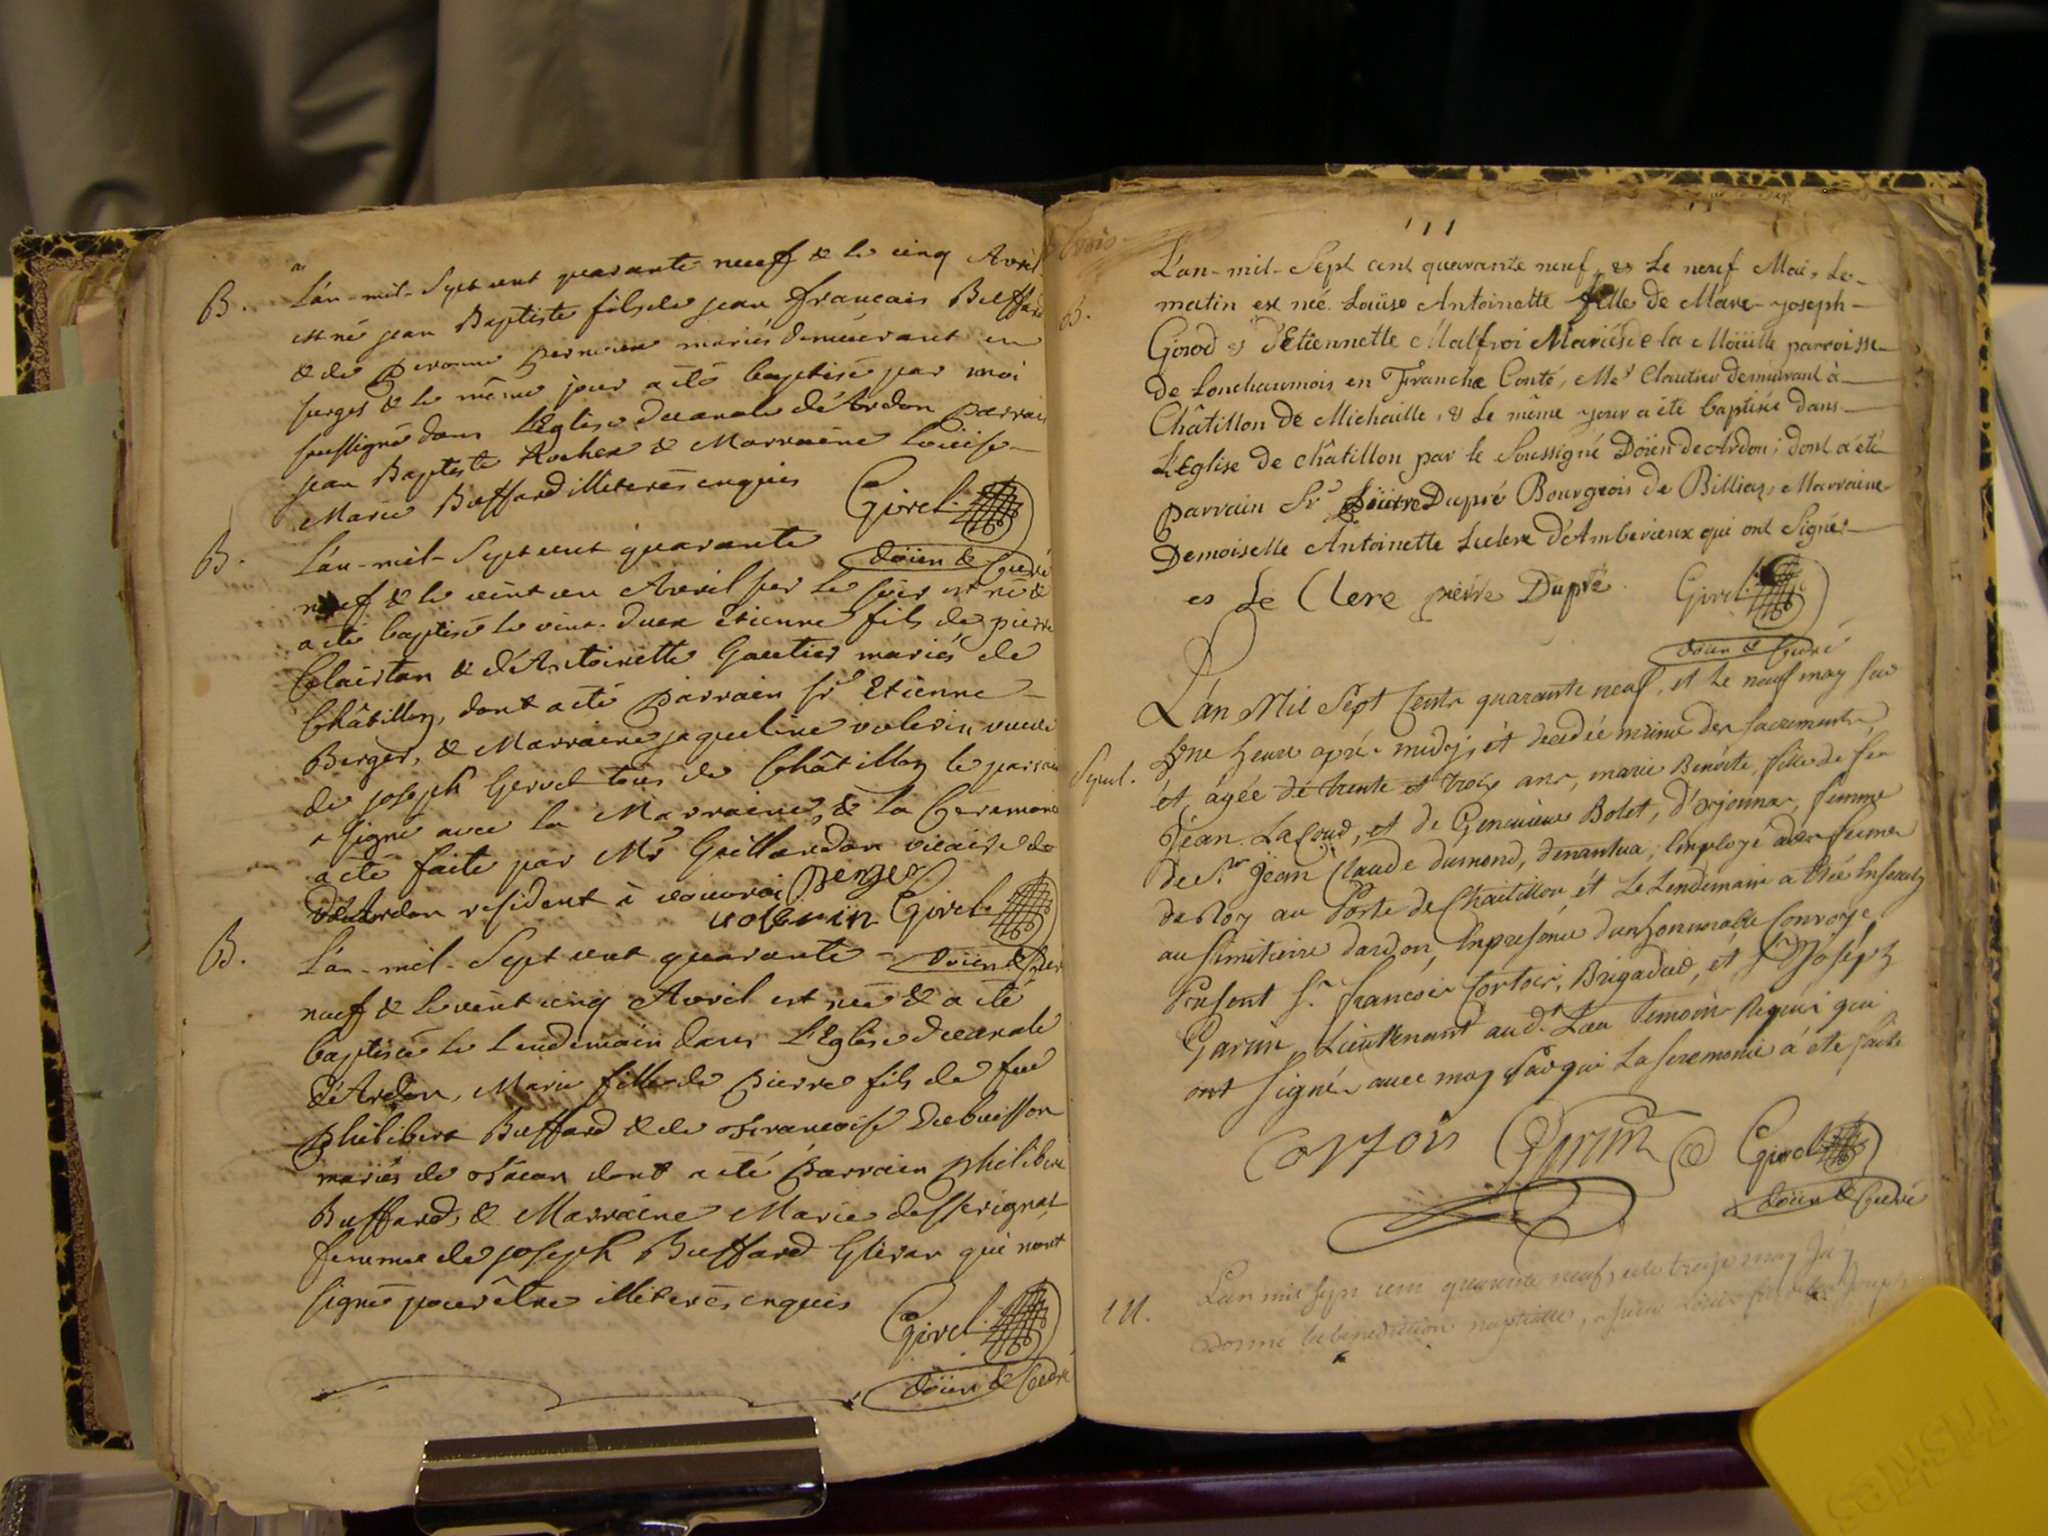 B.
L'an-mil-Sept cent quarante neuf & le cinq Avril
est né jean Baptiste fils de jean francais Buffard
& de peronne perneux mariés demeurant en
surges & le même jour a été baptisé par moi
soussigné dans L'Eglise decanale d'Ardon parrain
jean Baptiste Rochex & Marraine Louise
Marie Buffard illiterés enquis
Girel
doïen & Curé
B.
L'an-mil-Sept cent quarante
neuf & le vint un Avril sur le soir est né &
a été baptisé le vint-deux etienne fils de pierre
Clairtan & d'Antoinette Gautier mariés de
Châtillon, dont a été parrain Sr Etienne
Berger, & Marraine jaqueline volerin veuve
de joseph Gervel tous de Châtillon le parrain
a signé avec la Marraine, & la Ceremonie
a été faite par Mr Guillandon vicaire de
d'Ardon resident à vouvrai Berger
volerin Girel
doïen & Curé
B.
L'an-mil-Sept cent quarante
neuf & le vint cinq Avril est née & a été
baptisée le lendemain dans L'Eglise decanale
d'Ardon, Marie fille de Pierre fils de feu
philibert Buffard & de francoise Dubuisson
mariés de dont a été parrain philibert
Buffard, & Marraine Marie desserignat
femme de joseph Buffard qui n'ont
signé pour être illiterés enquis
Girel
doïen & Curé
111
B.
L'an-mil-Sept cent quarante neuf, & Le neuf Mai, Le
matin est née Loüise Antoinette fille de Marc-joseph
Girod & d'Etiennette Malfroi Mariés de la Moüille parroisse
de Lonchaumois en Franche Conté, Mer Clautier demeurant à
Châtillon de Michaille, & Le même jour a été baptisée dans
L'Eglise de châtillon par le Soussigné Doïen de Ardon; dont a été
parrain Sr Dupré Bourgeois de Billiaz, Marraine
Demoiselle Antoinette Leclerc d'Amberieux qui ont Signé
Le Clerc pierre Dupré Girel
doïen & Curé
Sepul.
L'an Mil Sept Cents quarante neuf, et Le neuf may sur
Lune heure aprés midy, ét decedée munie des sacrements,
ét agée de trente et trois ans, marie Benoite, fille de feu
Jean Lafond, et de Genevieve Bolet, d'arjonnax, femme
de Sr Jean Claude dumond, denantua, Employé dans les fermes
du Roy au Poste de Chaitillon, ét Le Lendemain a été Enseveli
au simitiere dardon, Enpresence d'un honnorable Convoye,
Present Sr francois Cortois, Brigadié, et Sr Joséph
Garin, Lieuttenant audt Lieu temoins Requis qui
ont signé avec moy Par qui La seremonie á éte faite
Cortois Garin Girel
doïen & Curé
L'an mil sept cent quarante neuf, & le treize may jay
donné la benediction nuptialle, a